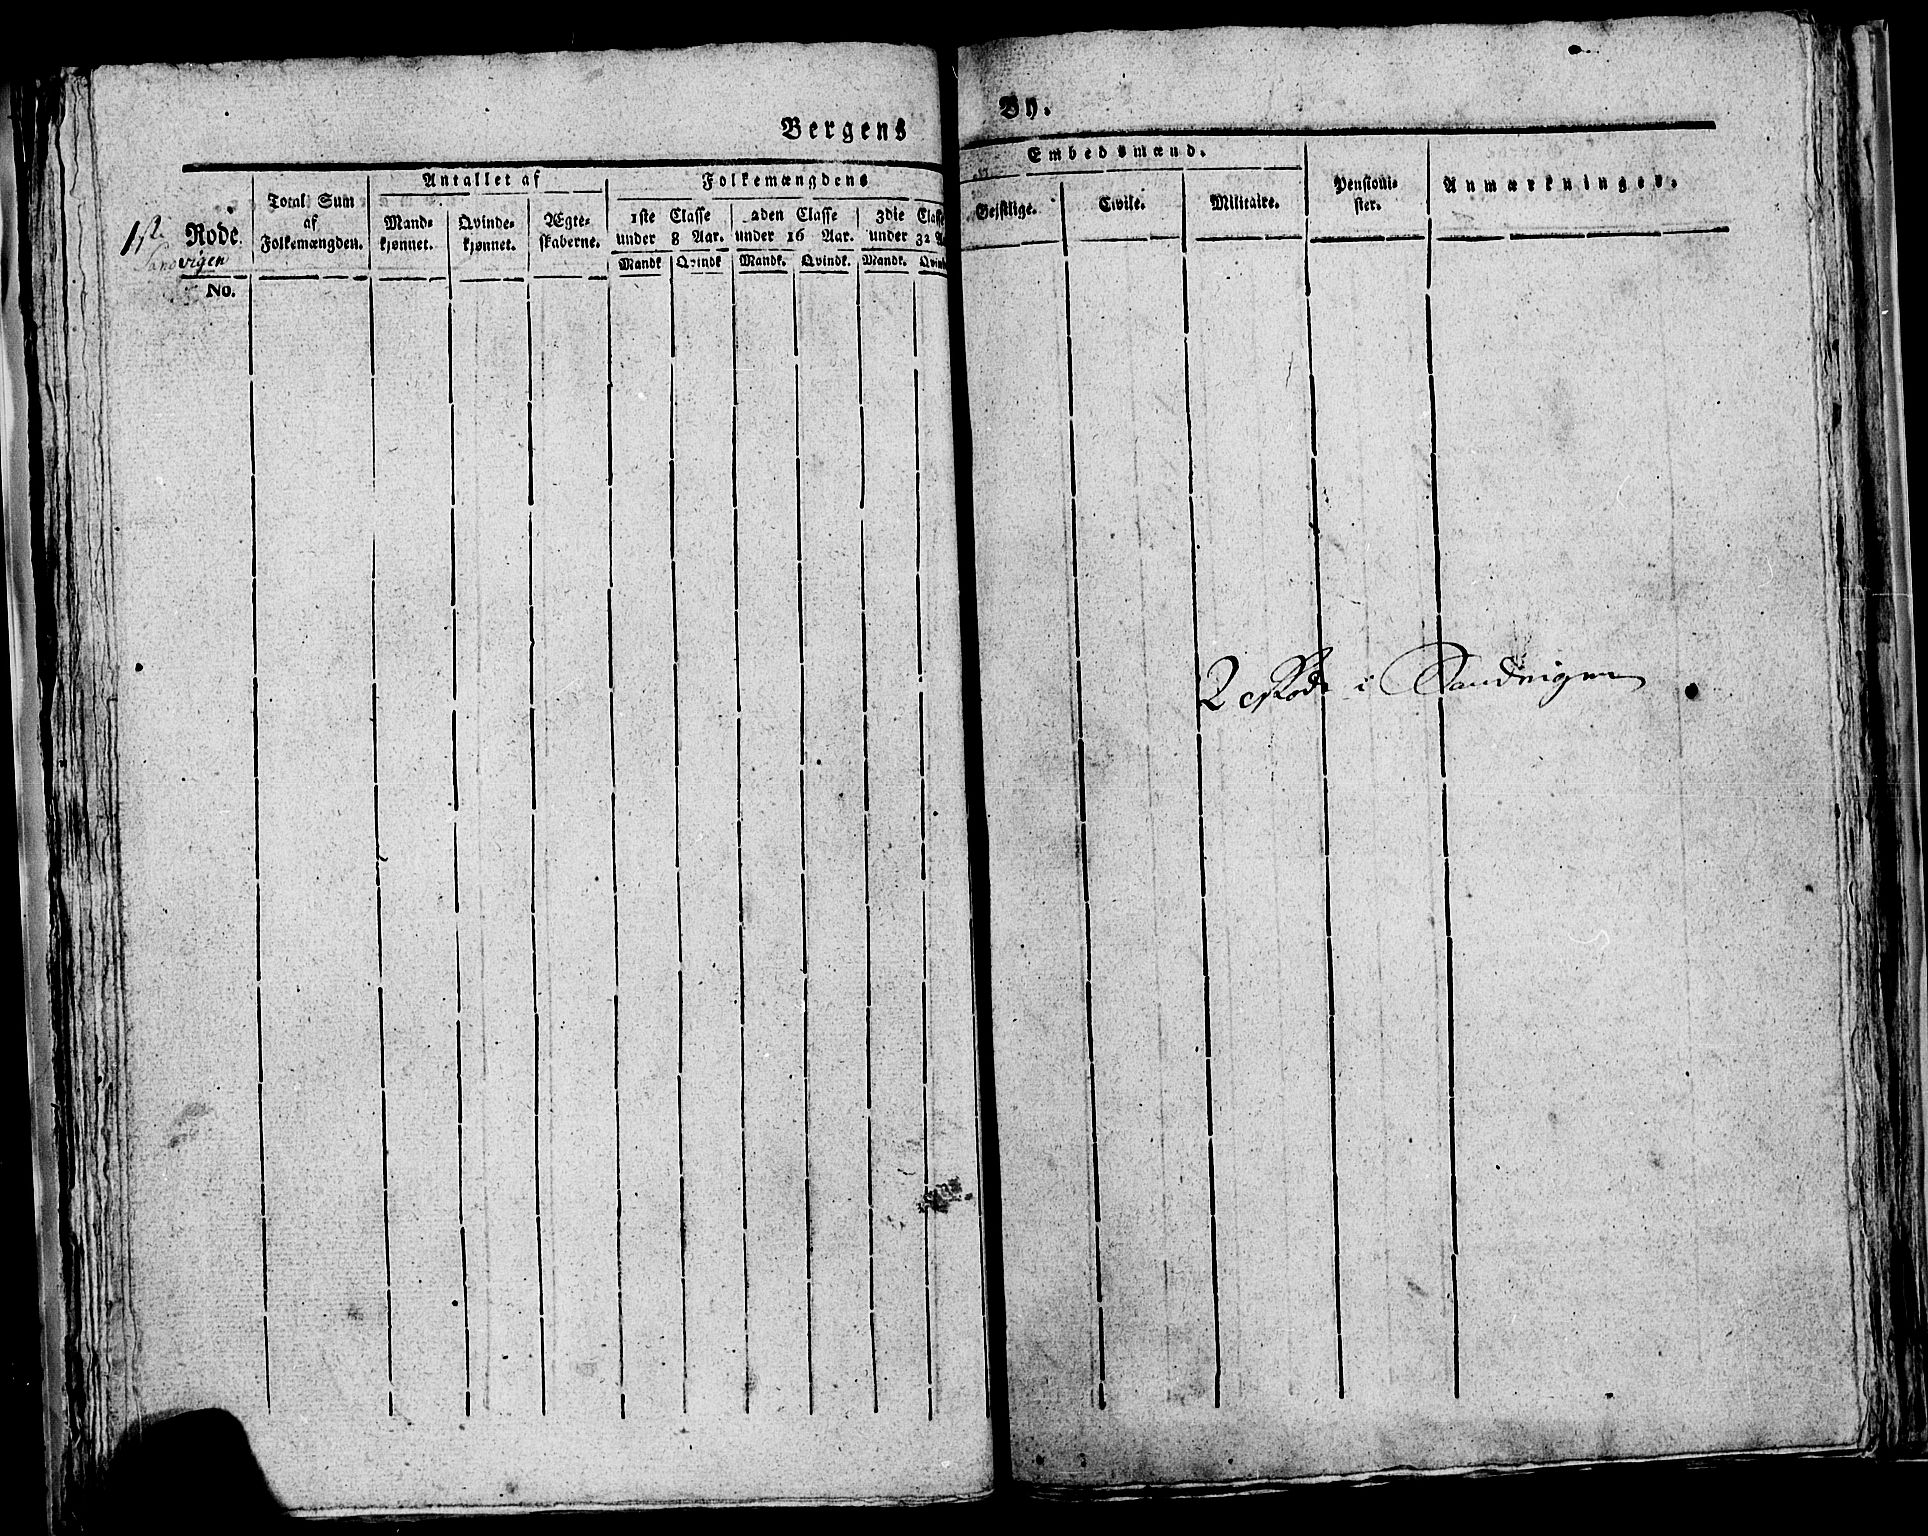 Bergens By.
1st Rode.
Sandvigen
No.
Total Sum
af
Folkemængden.
Antallet af
Mand-
kjønnet.
Qvinde-
kjønnet.
Ægte-
skaberne.
Folkemængdens
1ste Classe
under 8 Aar.
Mandk Qvindk
2den Classe
under 16 Aar.
Mandk. Qvindk.
3die Classe
under 32 A
Mandk. Qvind
Embedsmænd.
Geistlige.
Civile.
Militaire.
Pensioni-
ster.
Anmærkninger.
2 Rode i Sandvigen